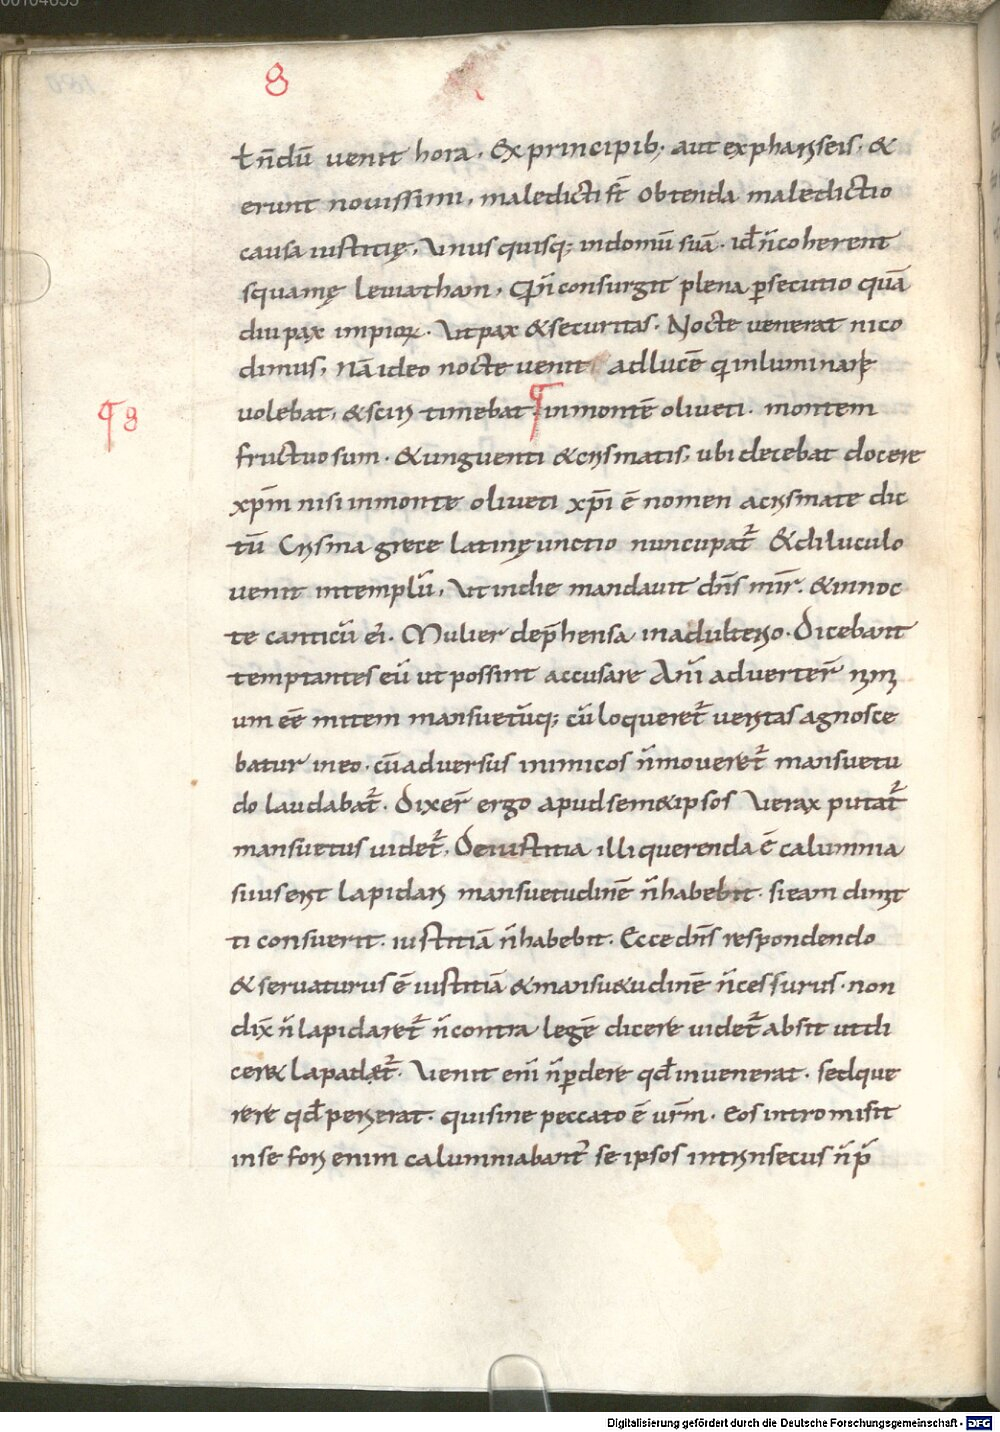 8
ƚ n̄dū venit hora. Ex principib; aut ex phariseis. &
erunt novissimi, maledicti st̄ Obtenda maledictio
causa iusticię, Vnus quisq; in domū suā. id n̄ coherent
squamę leviathan, Qn̄ consurgit plena ꝑsecutio quā
diu pax impioꝝ. Ut pax & securitas. Nocte venerat nico
dimus, Nā ideo nocte venit ad lucē q inluminari
volebat, & sciri timebat ¶ in montē oliveti. montem
¶ 8
fructuosum. & unguenti & crismatis, ubi decebat docere
xpm̄ nisi in monte oliveti xp̄i ē nomen a crismate dic
tū Crisma grece latinę unctio nuncupat̄ & diluculo
venit in templū, Ut in die mandavit dn̄s mīr. & in noc
te canticū ei. Mulier dep̄hensa in adulterio. Dicebant
temptantes eū ut possint accusare Ani͂adverter̄ nim
um eē mitem mansuetūq; cū loqueret̄ veritas agnosce
batur in eo. cū adversus inimicos n̄ moveret̄ mansuetu
do laudabat̄. Dixer̄ ergo apud semetipsos Verax putat̄
mansuetus videt̄, De iustitia illi querenda ē calumnia
si iuserit lapidari mansuetudinē n̄ habebit. si eam dimit
ti consuerit. iustitiā n̄ habebit. Ecce dn̄s respondendo
& servaturus ē iustitiā & mansu&udinē n̄ cessurus. non
dix̄ n̄ lapidaret̄ n̄ contra legē dicere videt̄ absit ut di
ceret lapadet̄. Venit eni͂ n̄ ꝑdere qd̄ invenerat. sed que
rere qd̄ perierat. qui sine peccato ē vr̄m. Eos intromisit
in se foris enim calumniabant̄ se ipsos intrinsecus n̄ p̄
Digitalisierung gefördert durch die Deutsche Forschungsgemeinschaft - DFG